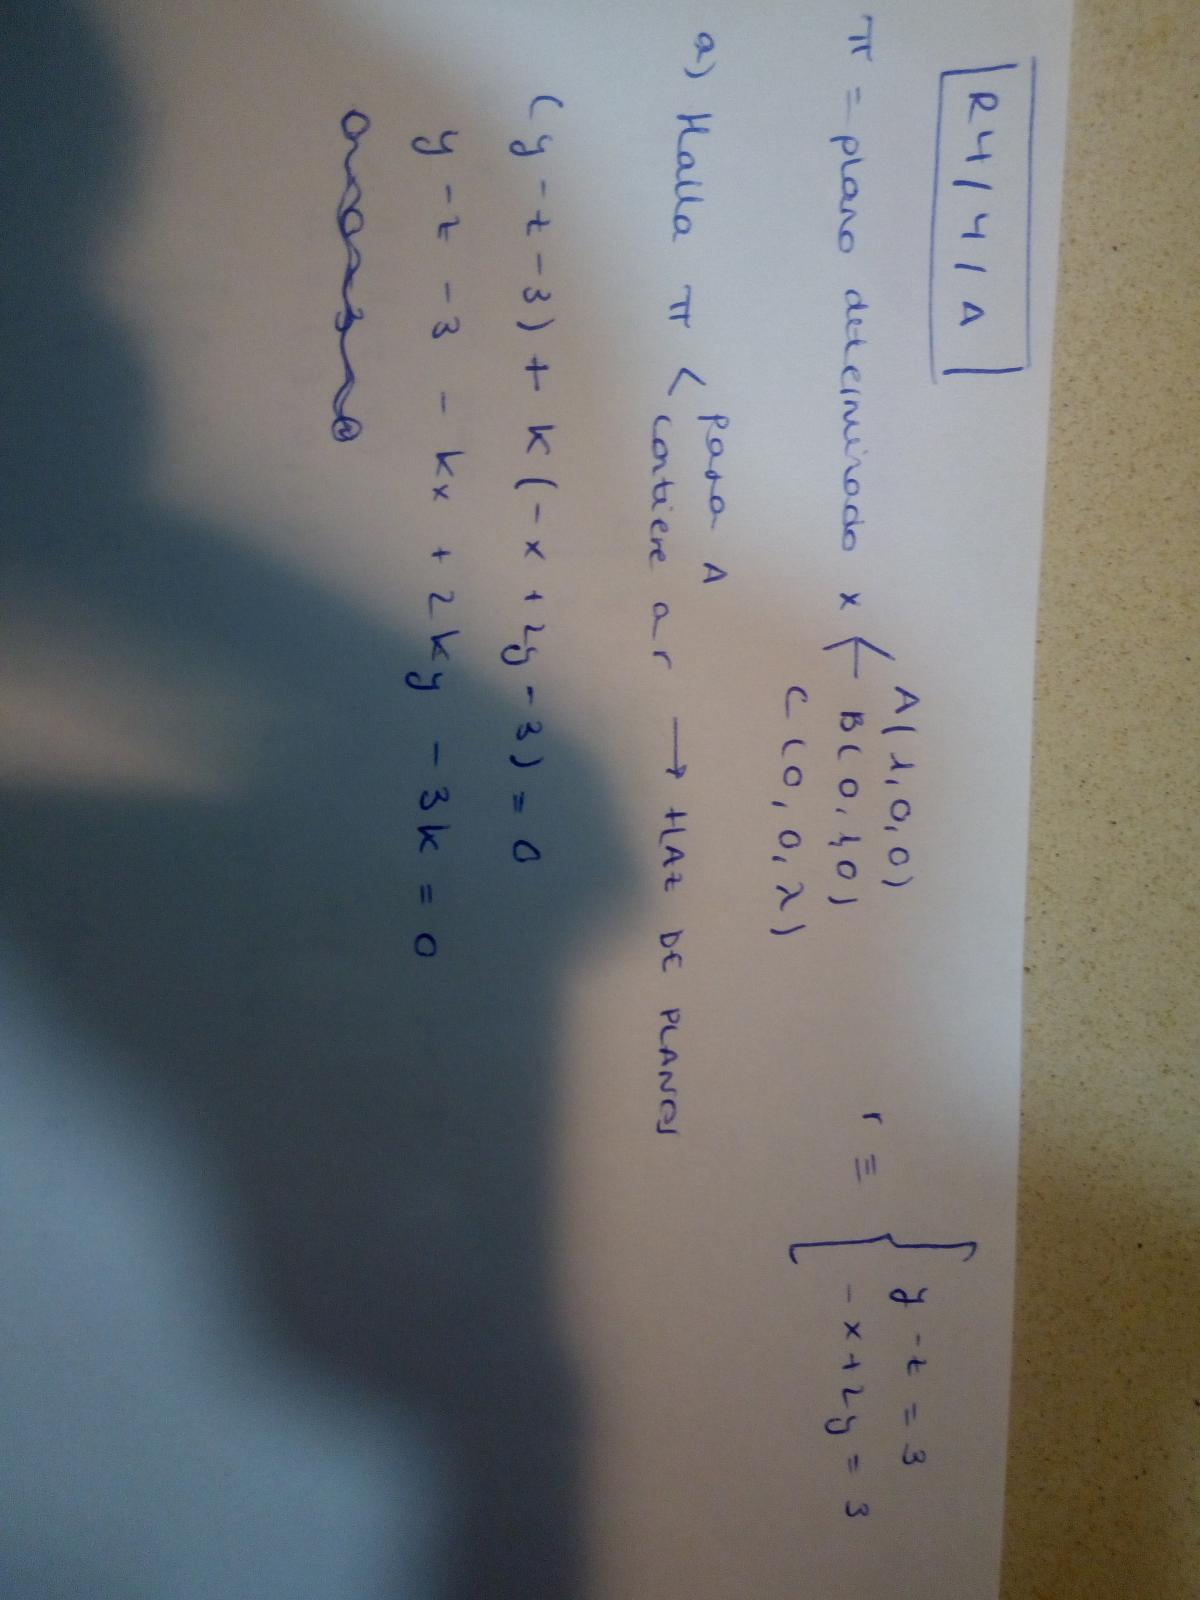 R4/4/A
π = plano determinado x A(1,0,0)
B(0,1,0)
C(0,0,λ)
r ≡ { y - z = 3
-x + 2y = 3
a) Halla π < pasa A
contiene a r → HAZ DE PLANOS
(y - z - 3) + k(-x + 2y - 3) = 0
y - z - 3 - kx + 2ky - 3k = 0